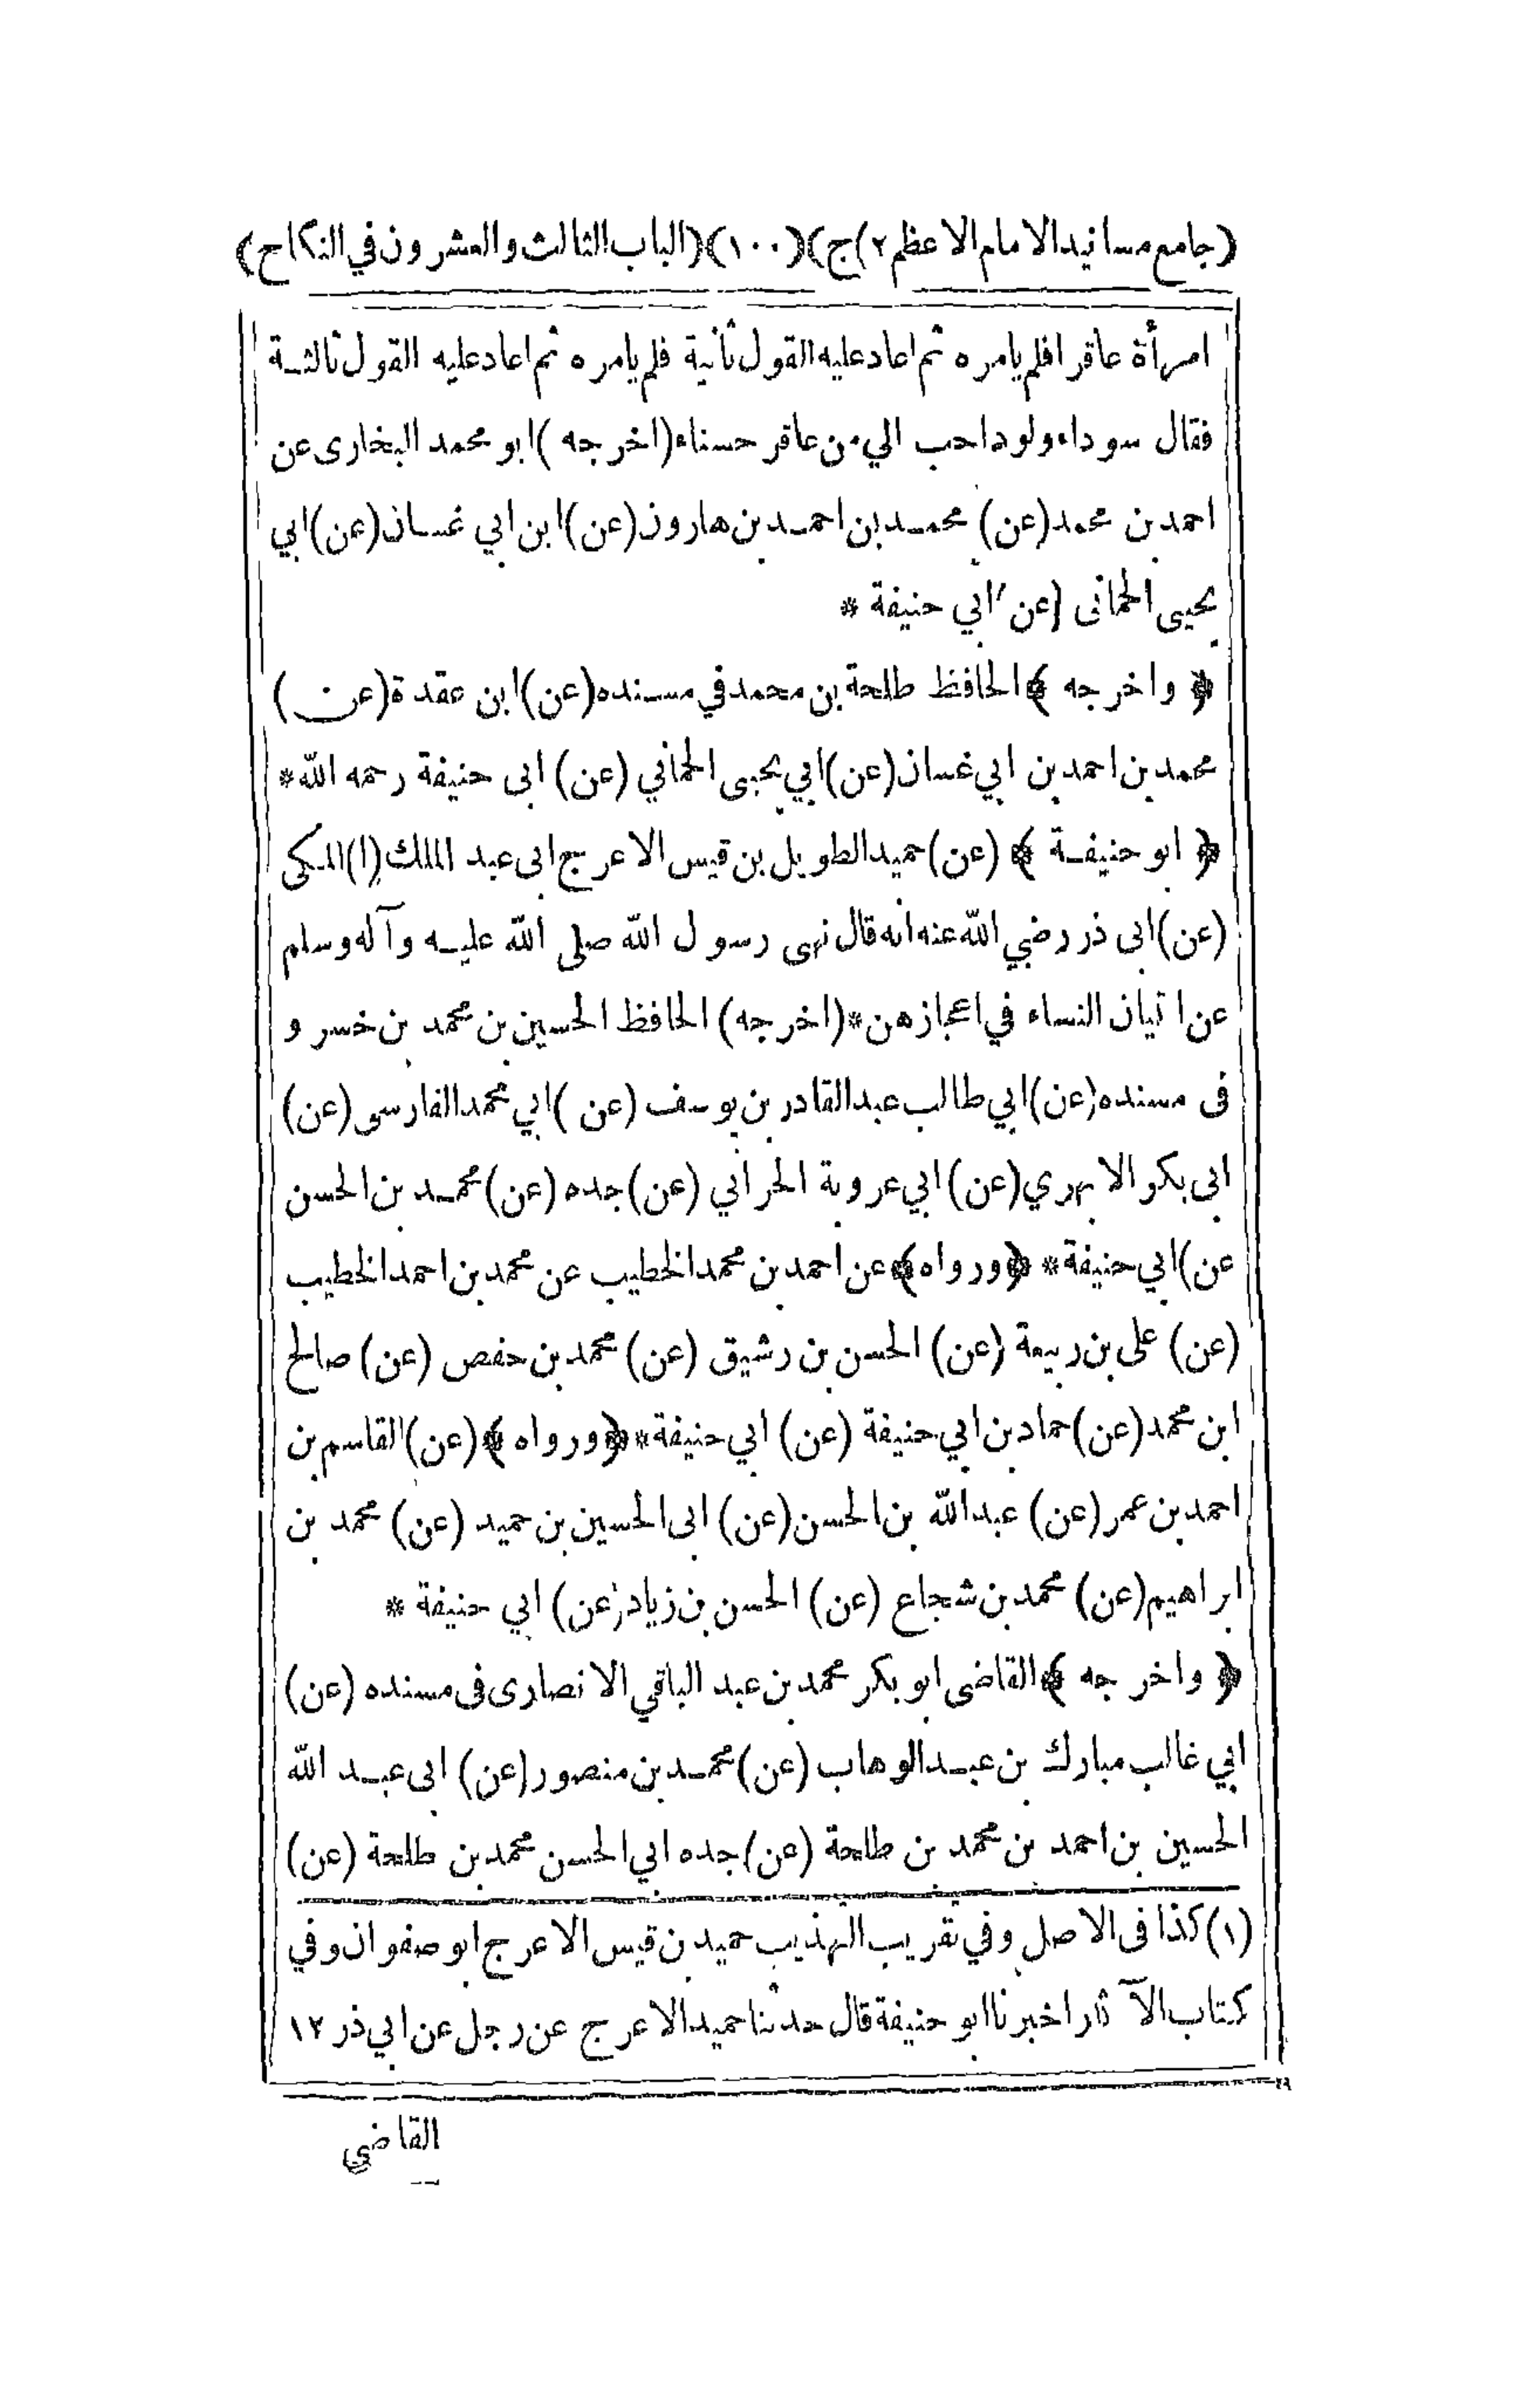 (جامع مسانيد الامام الاعظم ٢)ج)(١٠٠)(الباب الثالث والعشرون في النكاح)
امرأة عاقرا فلم يامره ثم اعاد عليه القول ثانية فلم يامره ثم اعاد عليه القول ثالثة
فقال سوداء ولود احب الي من عاقر حسناء (اخرجه) ابو محمد البخارى عن
احمد بن محمد (عن) محمد بن احمد بن هارون (عن) ابن ابي غسان (عن) ابي
يحيى الحمانى (عن) ابي حنيفة *
﴿ واخرجه ﴾ الحافظ طلحة بن محمد في مسنده (عن) ابن عقدة (عن)
محمد بن احمد بن ابي غسان (عن) ابي يحيى الحماني (عن) ابى حنيفة رحمه الله *
﴿ ابو حنيفة ﴾ (عن) حميد الطويل بن قيس الاعرج ابى عبد الملك (١) المكى
(عن) ابى ذر رضي الله عنه انه قال نهى رسول الله صلى الله عليه وآله وسلم
عن اتيان النساء في اعجازهن * (اخرجه) الحافظ الحسين بن محمد بن خسرو
فى مسنده (عن) ابي طالب عبد القادر بن يوسف (عن) ابي محمد الفارسى (عن)
ابى بكر الابهري (عن) ابي عروبة الحراني (عن) جده (عن) محمد بن الحسن
عن) ابي حنيفة * ﴿ورواه﴾ عن احمد بن محمد الخطيب عن محمد بن احمد الخطيب
(عن) على بن ربيعة (عن) الحسن بن رشيق (عن) محمد بن حفص (عن) صالح
ابن محمد (عن) حماد بن ابي حنيفة (عن) ابي حنيفة * ﴿ورواه﴾ (عن) القاسم بن
احمد بن عمر (عن) عبد الله بن الحسن (عن) ابى الحسين بن حميد (عن) محمد بن
ابراهيم (عن) محمد بن شجاع (عن) الحسن بن زياد (عن) ابي حنيفة *
﴿ واخرجه ﴾ القاضى ابو بكر محمد بن عبد الباقي الانصارى فى مسنده (عن)
ابي غالب مبارك بن عبد الوهاب (عن) محمد بن منصور (عن) ابى عبد الله
الحسين بن احمد بن محمد بن طلحة (عن) جده ابي الحسن محمد بن طلحة (عن)
(١) كذا فى الاصل وفي تقريب التهذيب حميد بن قيس الاعرج ابو صفوان وفي
كتاب الآثار اخبرنا ابو حنيفة قال حدثنا حميد الاعرج عن رجل عن ابي ذر ١٢
القاضي